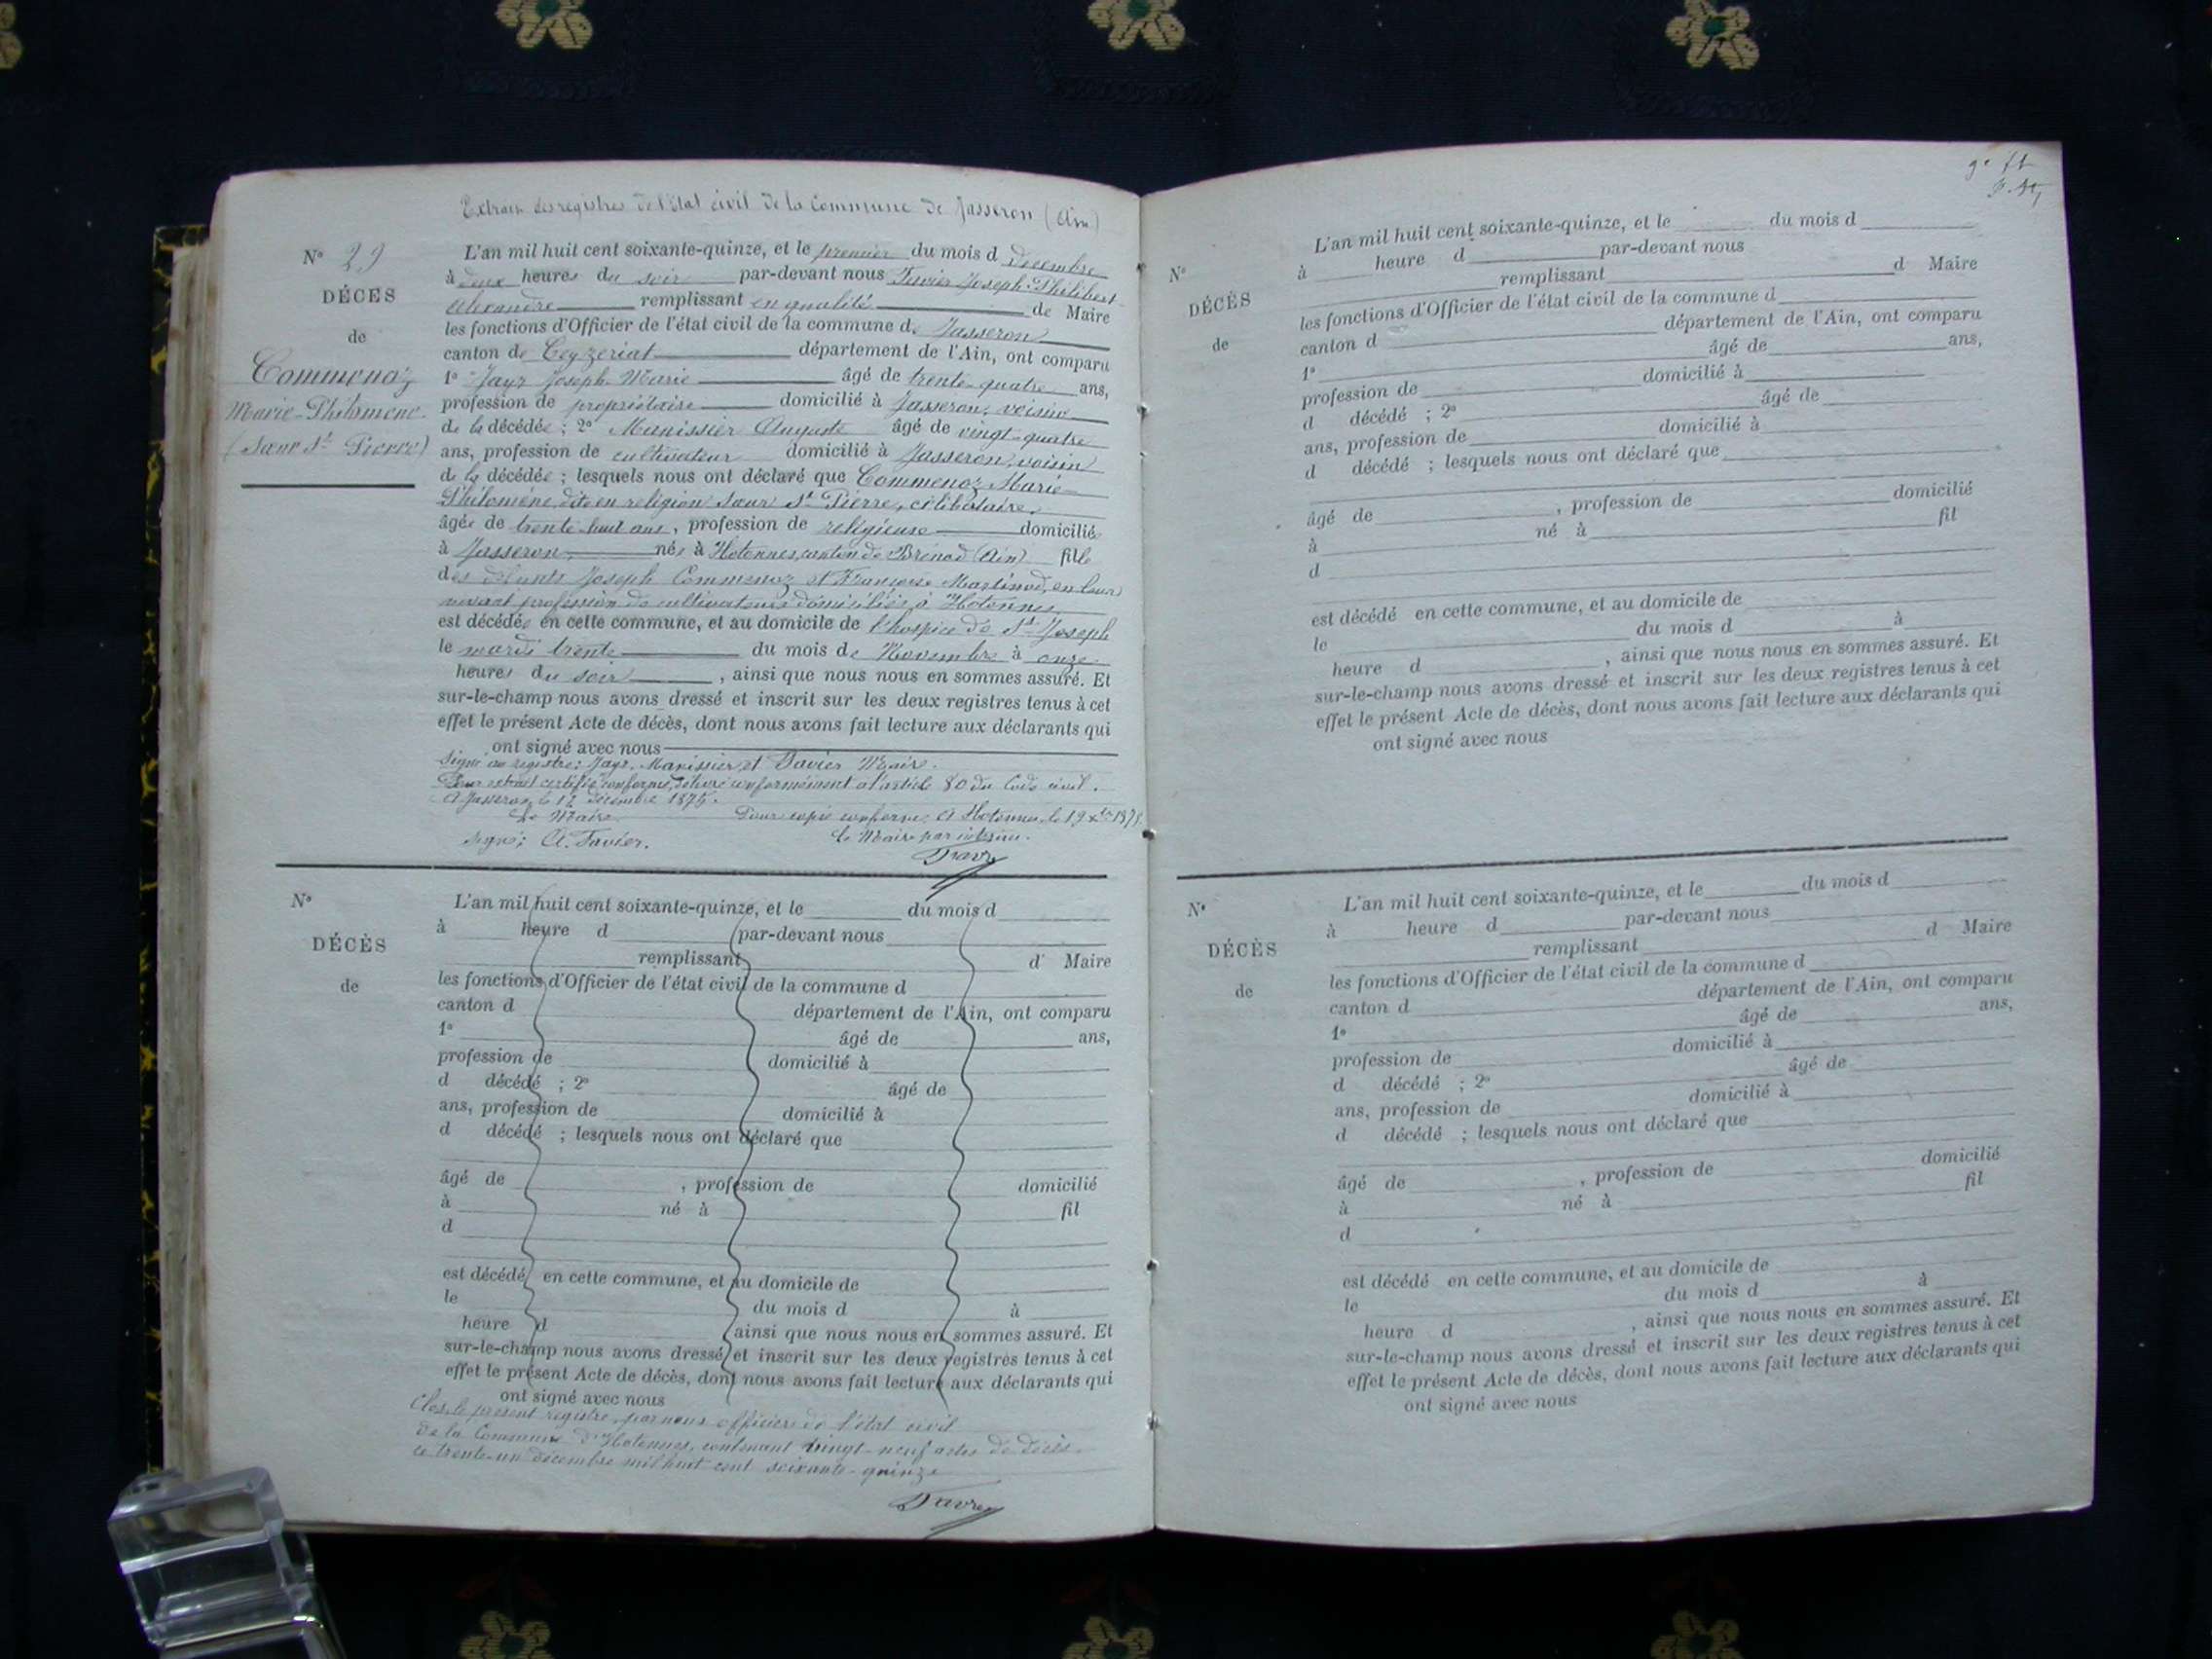 Extrait des registres de l'état civil de la Commune de Jasseron (Ain)
N° 29
DÉCÈS
de
Commenoz
Marie-Philomène
(Sœur St Pierre)
L'an mil huit cent soixante-quinze, et le premier du mois d décembre
à deux heures du soir par-devant nous Favier Joseph-Philibert
Alexandre remplissant en qualité de Maire
les fonctions d'Officier de l'état civil de la commune de Jasseron
canton de Ceyzeriat département de l'Ain, ont comparu
1° Jayr Joseph-Marie âgé de trente-quatre ans,
profession de propriétaire domicilié à Jasseron, voisin
de la décédée ; 2° Manissier Auguste âgé de vingt-quatre
ans, profession de cultivateur domicilié à Jasseron, voisin
de la décédée ; lesquels nous ont déclaré que Commenoz Marie-
Philomène, dite en religion Sœur St Pierre, célibataire,
âgée de trente-huit ans, profession de religieuse domiciliée
à Jasseron, née à Hotonnes, canton de Brénod (Ain) fille
des défunts Joseph Commenoz et Françoise Martinod, en leur
vivant profession de cultivateurs domiciliés à Hotonnes
est décédée en cette commune, et au domicile de l'hospice de St Joseph
le mardi trente du mois de Novembre à onze
heures du soir, ainsi que nous nous en sommes assuré. Et
sur-le-champ nous avons dressé et inscrit sur les deux registres tenus à cet
effet le présent Acte de décès, dont nous avons fait lecture aux déclarants qui
ont signé avec nous
Signé au registre: Jayr, Manissier et Favier Maire.
Pour extrait certifié conforme, délivré conformément à l'article 80 du Code civil.
A Jasseron, le 12 décembre 1875.
Le Maire
Pour copie conforme: A Hotonnes, le 19 Xbre 1875
Signé: A. Favier.
le Maire par intérim.
N°
DÉCÈS
de
L'an mil huit cent soixante-quinze, et le du mois d
à heure d par-devant nous
remplissant d Maire
les fonctions d'Officier de l'état civil de la commune d
canton d département de l'Ain, ont comparu
1° âgé de ans,
profession de domicilié à
d décédé ; 2° âgé de
ans, profession de domicilié à
d décédé ; lesquels nous ont déclaré que
âgé de , profession de domicilié
à né à fil
d
est décédé en cette commune, et au domicile de
le du mois d à
heure d ainsi que nous nous en sommes assuré. Et
sur-le-champ nous avons dressé et inscrit sur les deux registres tenus à cet
effet le présent Acte de décès, dont nous avons fait lecture aux déclarants qui
ont signé avec nous
Clos, le présent registre, par nous officier de l'état civil
de la Commune d'Hotonnes, contenant vingt-neuf actes de décès.
ce trente-un décembre mil huit cent soixante-quinze
N°
DÉCÈS
de
L'an mil huit cent soixante-quinze, et le du mois d
à heure d par-devant nous
remplissant d Maire
les fonctions d'Officier de l'état civil de la commune d
canton d département de l'Ain, ont comparu
1° âgé de ans,
profession de domicilié à
d décédé ; 2° âgé de
ans, profession de domicilié à
d décédé ; lesquels nous ont déclaré que
âgé de , profession de domicilié
à né à fil
d
est décédé en cette commune, et au domicile de
le du mois d à
heure d , ainsi que nous nous en sommes assuré. Et
sur-le-champ nous avons dressé et inscrit sur les deux registres tenus à cet
effet le présent Acte de décès, dont nous avons fait lecture aux déclarants qui
ont signé avec nous
N°
DÉCÈS
de
L'an mil huit cent soixante-quinze, et le du mois d
à heure d par-devant nous
remplissant d Maire
les fonctions d'Officier de l'état civil de la commune d
canton d département de l'Ain, ont comparu
1° âgé de ans,
profession de domicilié à
d décédé ; 2° âgé de
ans, profession de domicilié à
d décédé ; lesquels nous ont déclaré que
âgé de , profession de domicilié
à né à fil
d
est décédé en cette commune, et au domicile de
le du mois d à
heure d , ainsi que nous nous en sommes assuré. Et
sur-le-champ nous avons dressé et inscrit sur les deux registres tenus à cet
effet le présent Acte de décès, dont nous avons fait lecture aux déclarants qui
ont signé avec nous